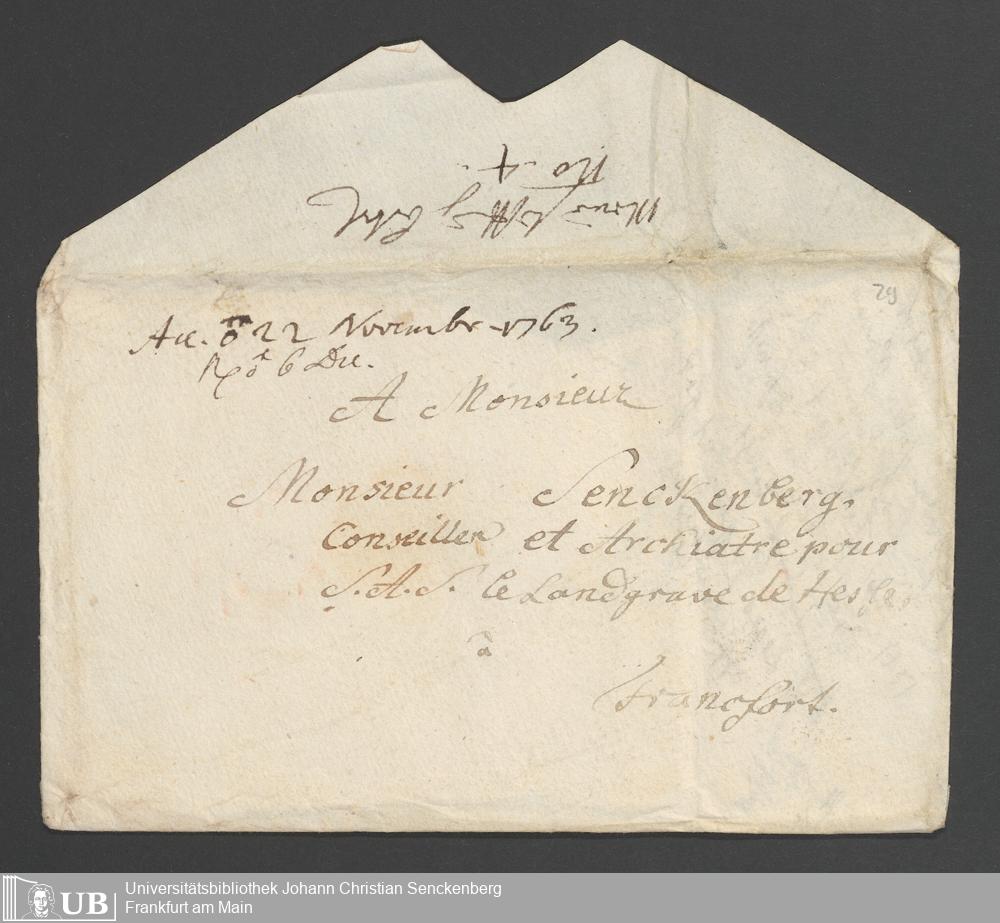 No 4.
29
Acc. ð 22 Novembr. 1763.
Rp ð 6 Dec.
A Monsieur
Monsieur Senckenberg,
Conseiller et Archiatre pour
S. A. S. le Landgrave de Hesse,
à
Francfort.
UB
Universitätsbibliothek Johann Christian Senckenberg
Frankfurt am Main